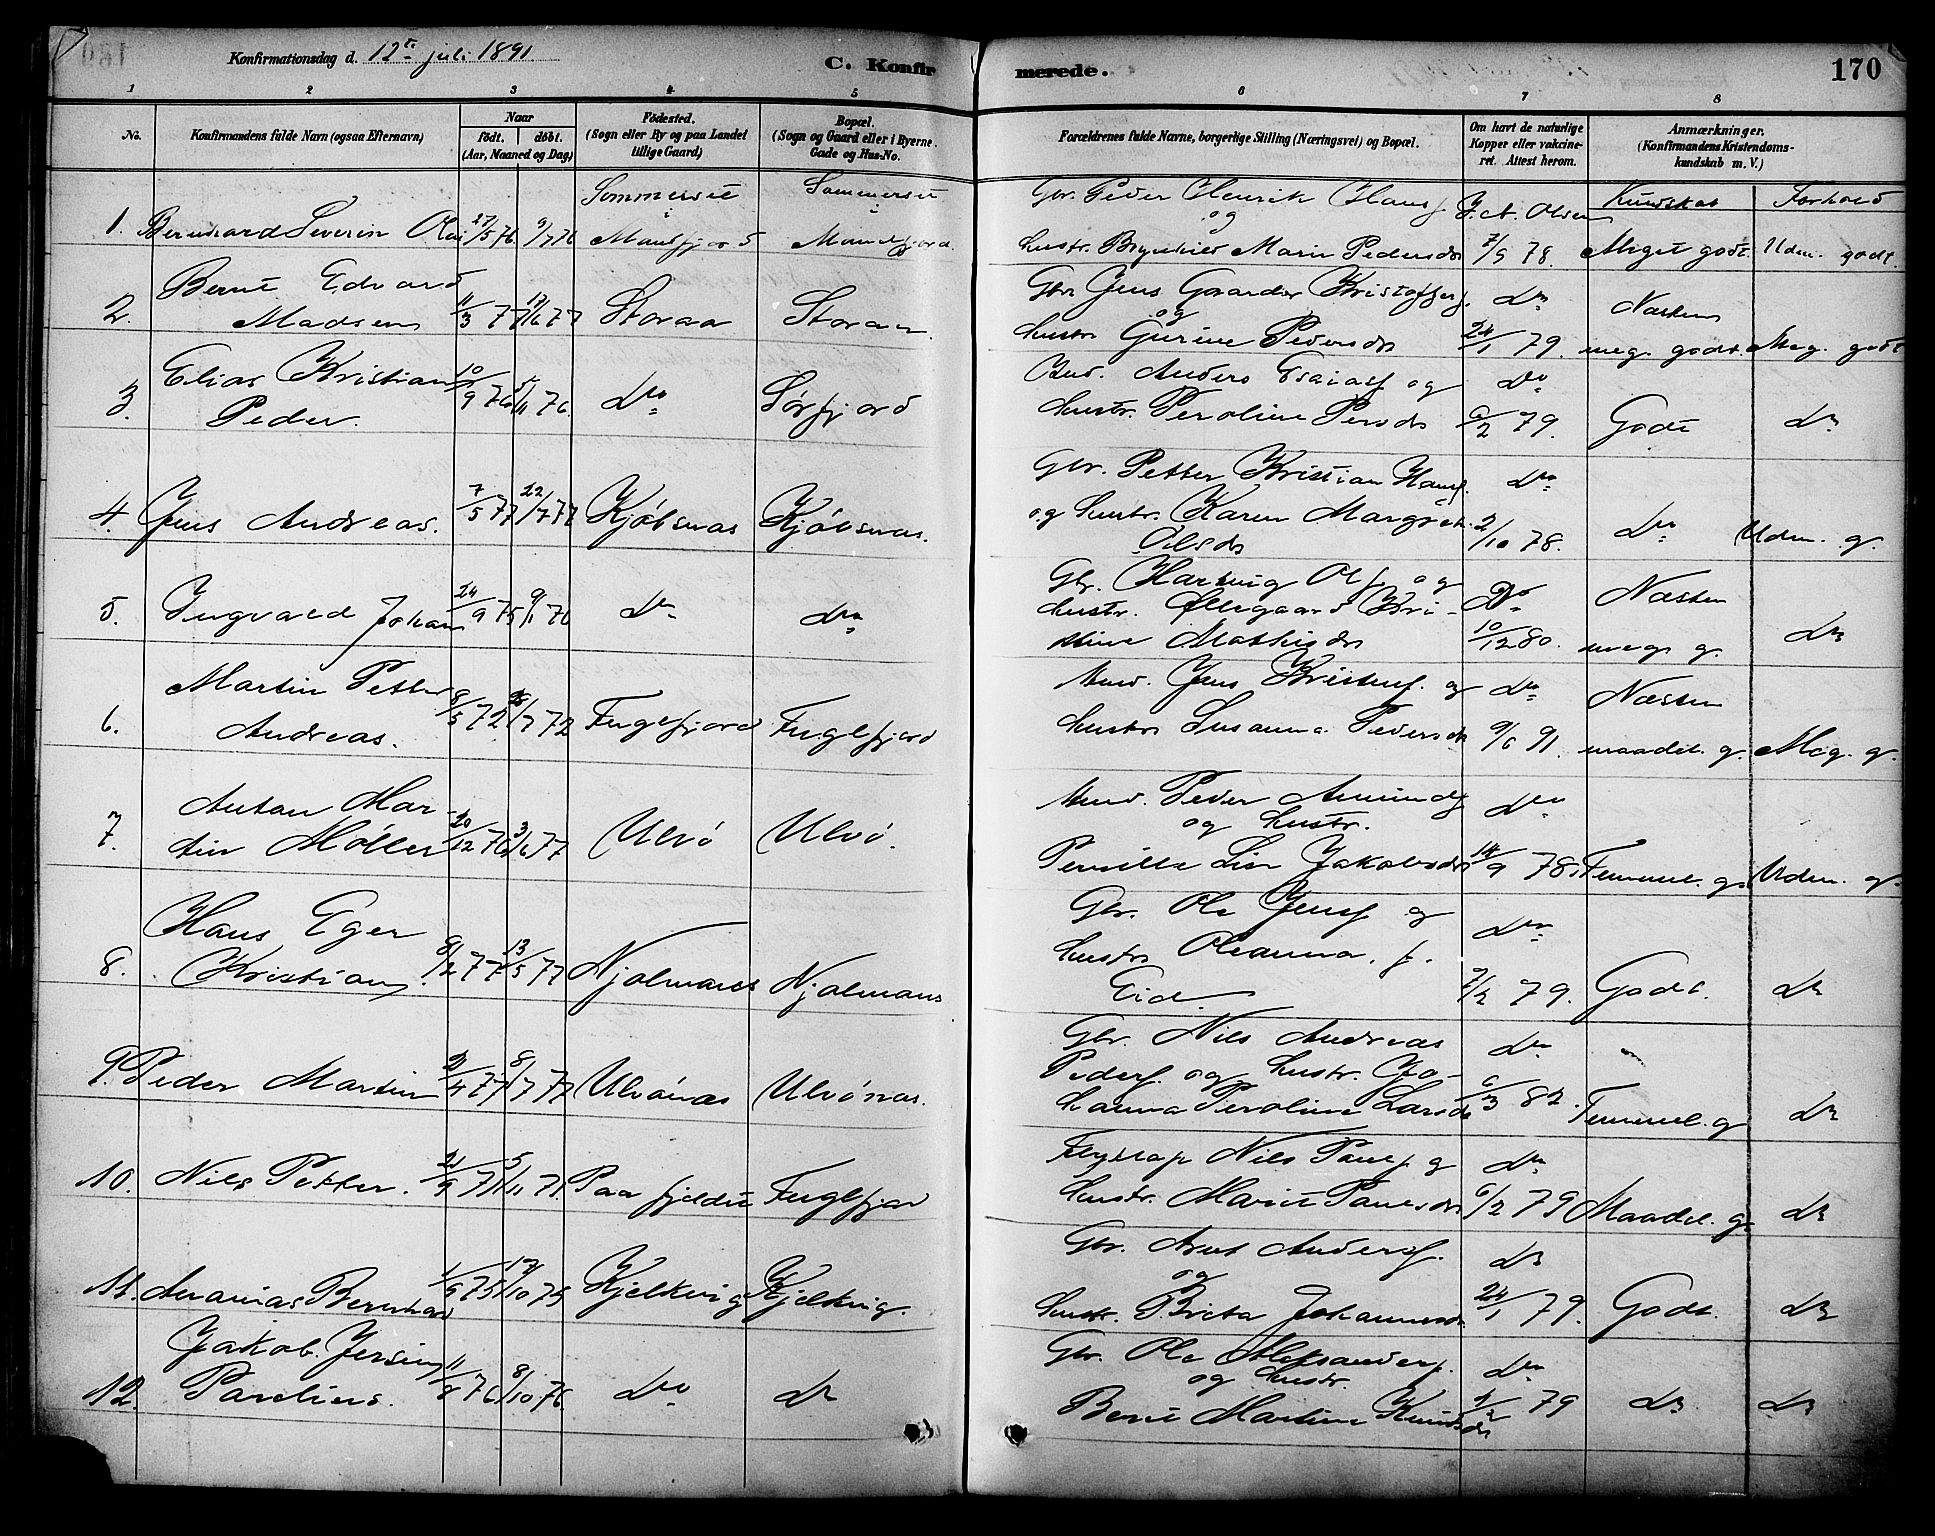 Konfirmationsdag d. 12te juli 1891.
C. Konfirmerede.
170
1 2 3 4 5 6 7 8
No.
Konfirmandens fulde Navn (ogsaa Efternavn)
Naar
født. døbt.
(Aar, Maaned og Dag)
Fødested.
(Sogn eller By og paa Landet
tillige Gaard)
Bopæl.
(Sogn og Gaard eller i Byerne
Gade og Hus-No.
Forældrenes fulde Navne, borgerlige Stilling (Næringsvei) og Bopæl.
Om havt de naturlige
Kopper eller vakcine-
ret. Attest herom.
Anmærkninger.
(Konfirmandens Kristendoms-
kundskab m. V.)
Sommersæt Sommersæt Gbr. Peder Henrik Hansf. J. A. Olsen Kundskab Forhold
1. Bernhard Severin Olai 27/5 76 9/7 76 Mansfjord Mansfjord og
hustr. Marie Pedersdr 7/9 78. Meget godt. Udm. godt.
2. Bernt Edvard
Madsen 11/3 77 17/6 77 Storaa Storaa. Gbr. Jens Kristoffersf. og
hustr. Gurine Pedersdr do 24/1 79. Næsten
meg. godt. Meg. godt
3. Elias Kristian
Peder. 10/9 76 5/11 76. do Sørfjord Anders Esaiasf. og
hustr. Peroline Persdr do 6/2 79. Godt do
4. Jens Andreas. 7/5 77 22/7 77 Kjøbsnæs Kjøbsnæs. Gbr. Petter Kristian Hansf.
og hustr. Karen Margret
Olsdr do 2/10 78. do Udm. g.
5. Ingvald Johan 24/9 75 9/1 76 do do Gbr. Hartvig Olsf. og
hustr. Ellegaard Kri-
stine Mathisdr do 10/12 80. Næsten
meg. g. do
6. Martin Petter
Andreas. 8/5 72 28/7 72 Fuglfjord Fuglfjord Jens og
hustr. Susanna Pedersdr do 9/6 91 Næsten
maadel. g. Meg. g.
7. Anton Mar-
tin Møller 20/12 76 3/6 77 Ulvø Ulvø. Peder Amundsf.
og hustr.
Pernilla Lisa Jakobsdr do 14/9 78. Temmel. g. Udm. g.
8. Hans Eger
Kristian. 8/2 77 13/5 77 Njalmanæs Njalmanæs Gbr. Ole Jensf. og
hustr. Oleanna. f.
Eid do 7/2 79. Godt. do
9. Peder Martin 2/4 77 8/7 77 Ulvønæs Ulvønæs. Gbr. Nils Andreas
Pedersf. og hustr. Jo-
hanna Peroline Larsdr do 6/3 82. Temmel. g do
10. Nils Petter. 21/9 71 5/11 71. Paa fjeldet Fuglfjord Flytlap Nils Paulsf. og
hustr. Marit Paulsdr do 6/2 79 Maadel. g. do
11. Ananias Bernhard 1/9 75 17/10 75 Kjelkvig Kjelkvig. Gbr. Arnt Andersf.
og
hustr. Brita Johannesdr do 24/1 79. Godt. do
12. Jakob Jersin
Parelius. 11/8 76 8/10 76. do do Gbr. Ole Aleksandersf.
og hustr.
Martine Knudsdr do 4/2 79 do do